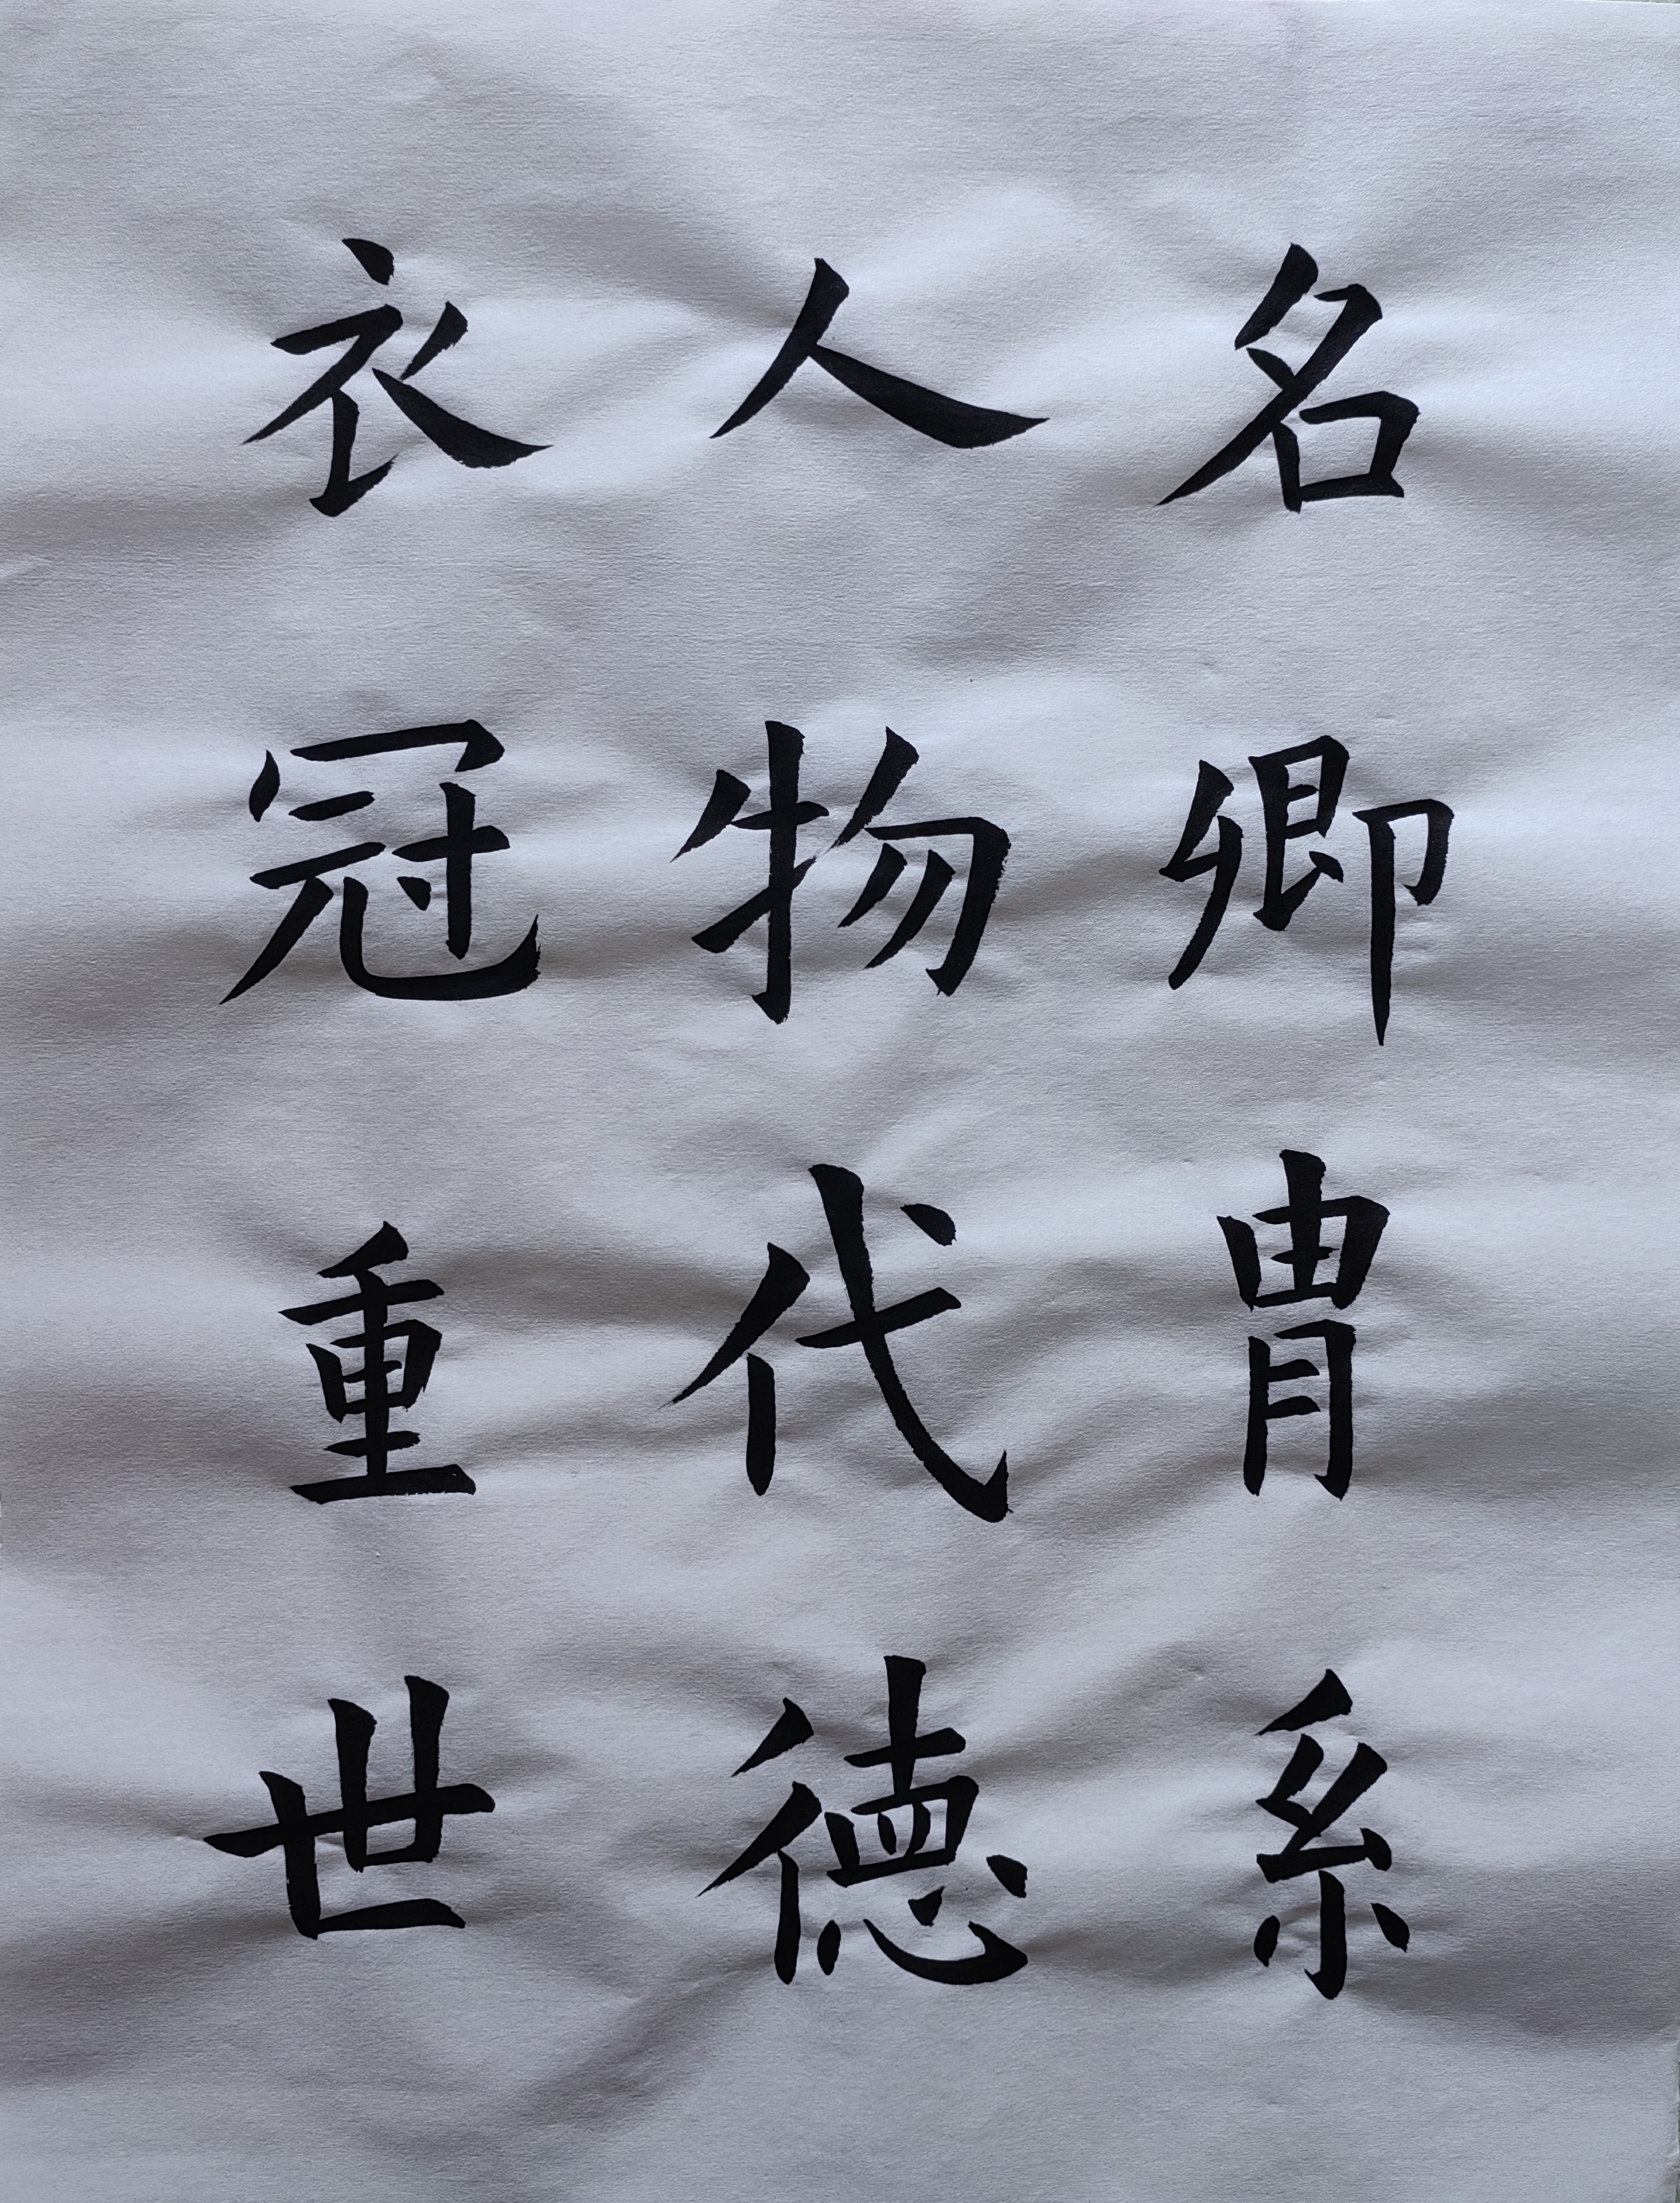 名卿胄系
人物代德
衣冠重世